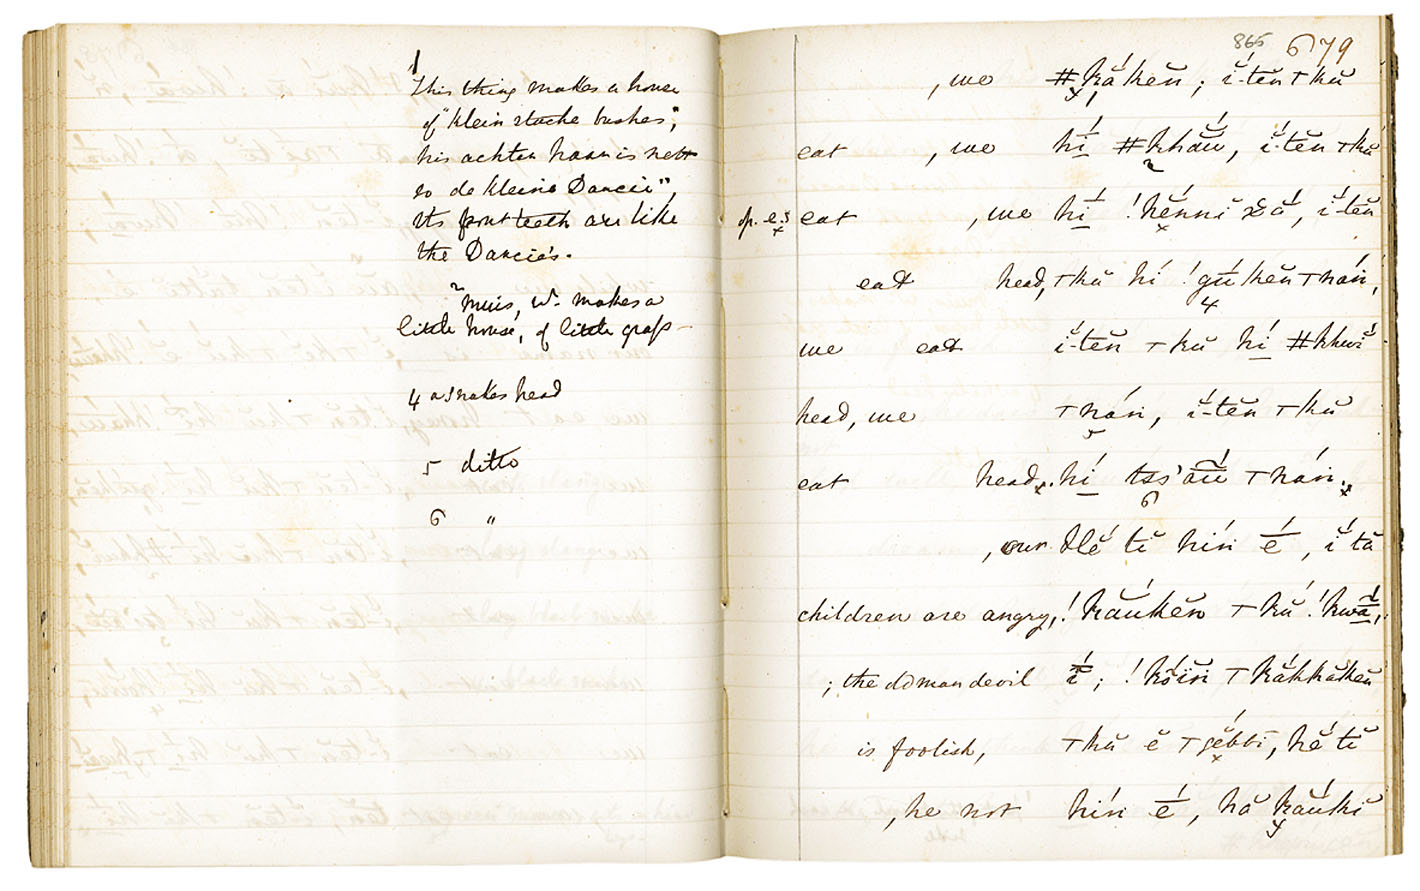 1
This thing makes a house
of "klein stache bushes",
his achter haar is net
so de kleine Dancie",
its front teeth are like
the Dancie's.
2 Muis, W. makes a
little house, of little grass —
4 a snakes head
5 ditto
6 "
865 6179
, we ǂkắkĕn; ĭ́-tĕn ⊤kŭ
eat , we hí ǂkhău, ĭ́-tĕn ⊤kŭ
op. e.s eat , we hí !kĕnnĭ xắ, ĭ́-tĕn
eat head, ⊤kŭ hí !gúkĕn ⊤nán,
4
we eat ĭ́-tĕn ⊤kŭ hí ǂkhwĭ́
head, we ⊤nán, ĭ́-tĕn ⊤kŭ
5
eat head. hí tss'áū ⊤nán.
6
, our hĕ́ tĭ hín é, ĭ́ tă
children are angry, !kăúkĕn ⊤kŭ !kwā́,
; the old man devil ī́; !kŏ́ïn ⊤kắkkăkĕn
is foolish, ⊤kŭ ĕ ⊤gĕ́bbĭ, hĕ́ tĭ
, he not hín é, hă kăúkĭ